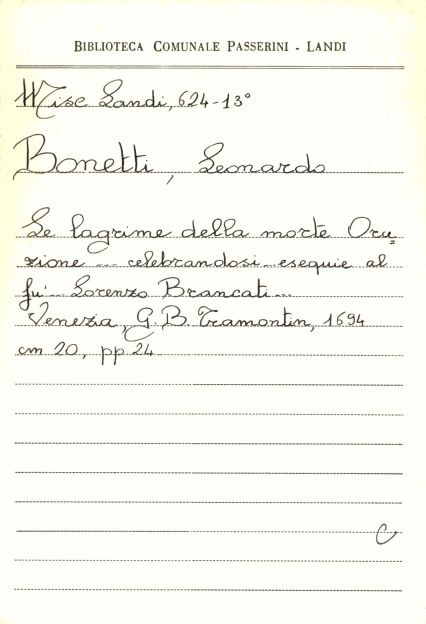 BIBLIOTECA COMUNALE PASSERINI - LANDI
Misc Landi, 624-13°
Bonetti, Leonardo
Le lagrime della morte Ora=
zione ... celebrandosi esequie al
fu ... Lorenzo Brancati...
Venezia, G.B. Tramontin, 1694
cm 20, pp 24
C